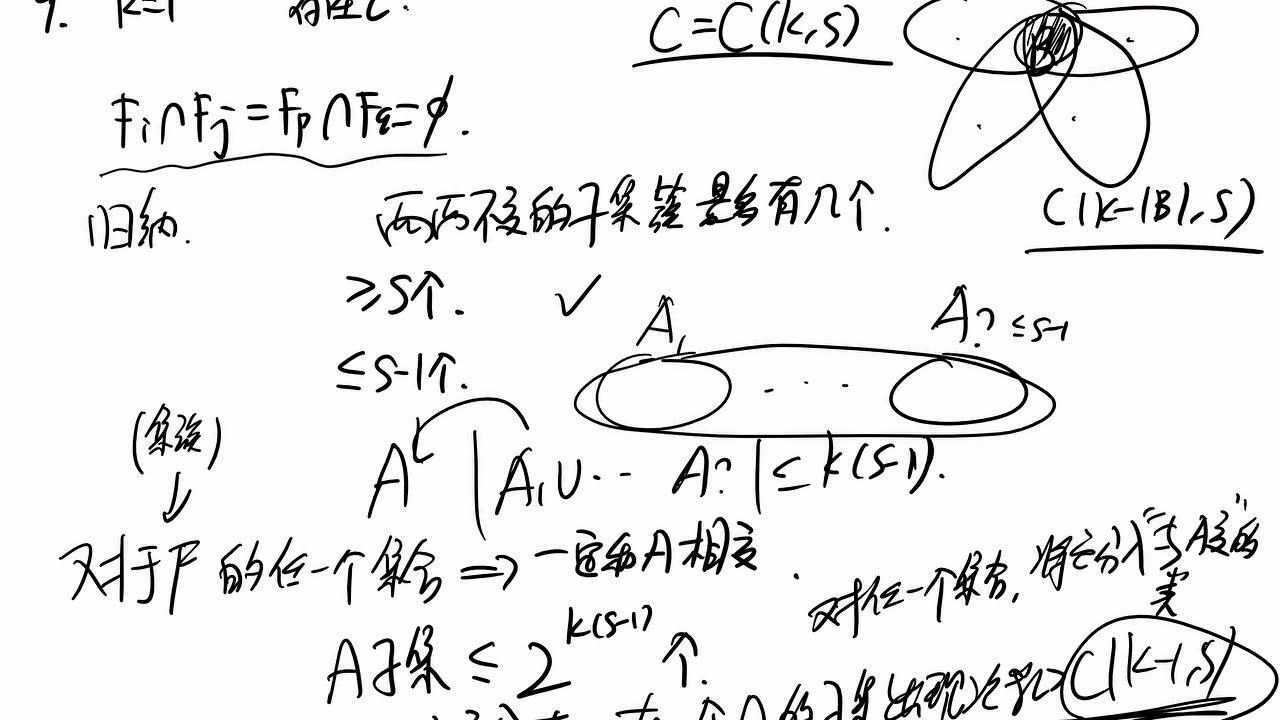 9. k=1 存在C.
C=C(k,S)
B
Fi∩Fj=Fp∩Fq=∅.
归纳. 两两不交的子集族最多有几个.
C(|k-|B|,S)
≥S个. ✓
≤S-1个.
A₁ ... A? ≤S-1
(集族)
↓
A |A₁∪... A?|≤k(S-1).
对于F的任一个集合 ⇒ 一定和A相交.
对任一个集合,将它分入"与A交的"类
A子集 ≤ 2^{k(S-1)} 个.
一个A的子集出现次数> C(k-1,S)